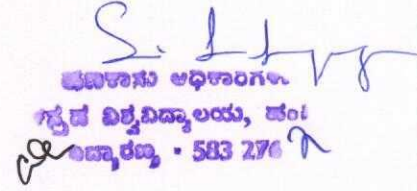 ಹಣಕಾಸು ಅಧಿಕಾರಿಗಳು
ಕನ್ನಡ ವಿಶ್ವವಿದ್ಯಾಲಯ, ಹಂಪಿ
ವಿದ್ಯಾರಣ್ಯ - 583 276